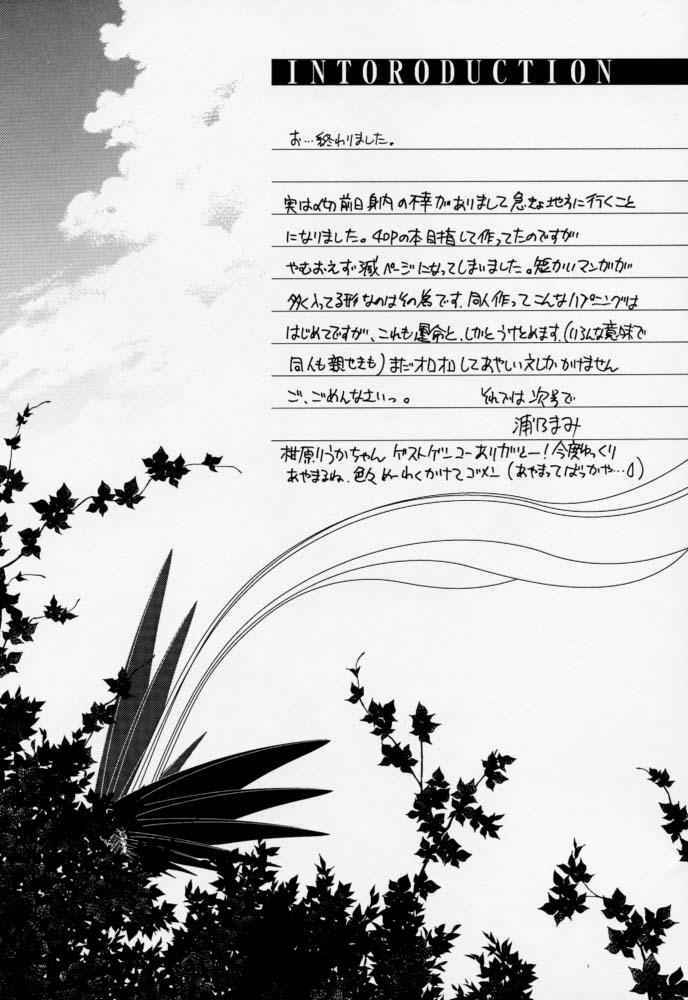 INTORODUCTION
お…終わりました。
実は〆切前日身内の不幸がありまして急きょ地方に行くこと
になりました。40Pの本目指して作ってたのですが
やもおえず減ページになってしまいました。短かいマンガが
多く入ってる形なのはその為です。同人作ってこんなハプニングは
はじめてですが、これも運命と、しかとうけとめます。(いろんな意味で
同人も親せきも)まだオロオロしてあやしいえしかかけません
ご、ごめんなさいっ。 それでは次号で
浦乃まみ
柑原りうかちゃん ゲストゲンコーありがとー!今度ゆっくり
あやまるね。色々めーわくかけてゴメン(あやまってばっかや…)